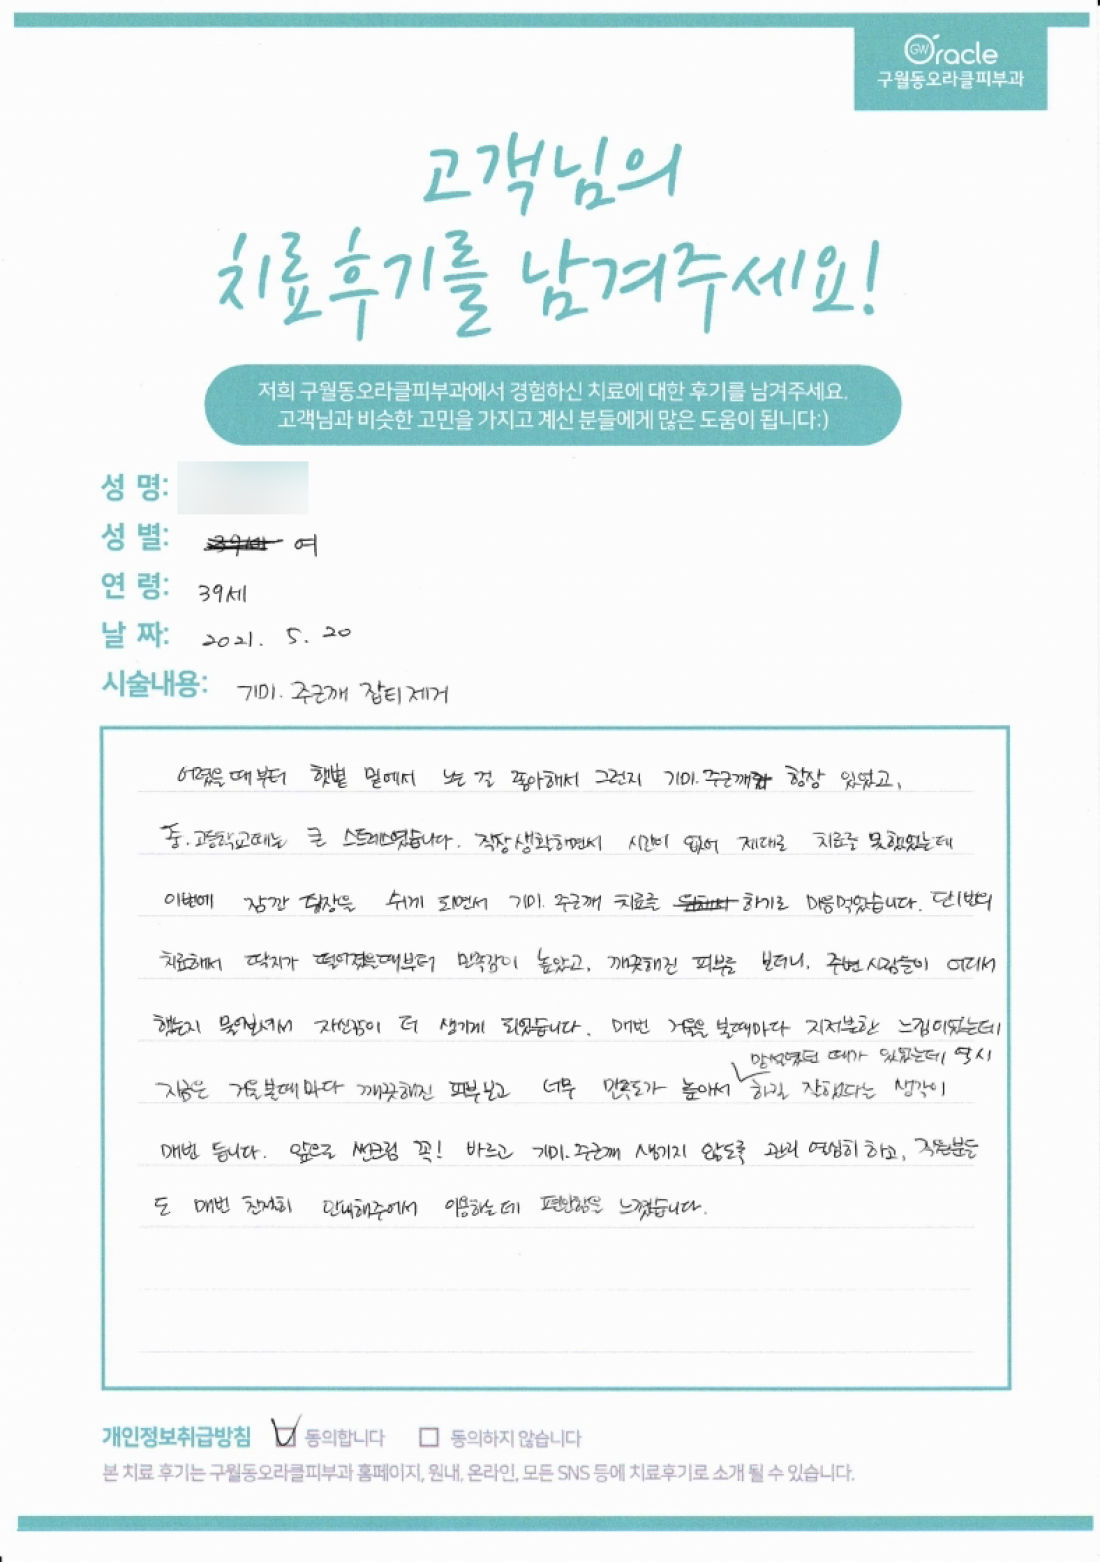 GW Oracle
구월동오라클피부과
고객님의
치료후기를 남겨주세요!
저희 구월동오라클피부과에서 경험하신 치료에 대한 후기를 남겨주세요.
고객님과 비슷한 고민을 가지고 계신 분들에게 많은 도움이 됩니다:)
성 명:
성 별: 39세 여
연 령: 39세
날 짜: 2021. 5. 20
시술내용: 기미. 주근깨 잡티 제거
어렸을 때부터 햇볕 밑에서 노는 걸 좋아해서 그런지 기미.주근깨가 항상 있었고,
중.고등학교때는 큰 스트레스였습니다. 직장생활하면서 시간이 없어 제대로 치료를 못했었는데
이번에 잠깐 직장을 쉬게 되면서 기미. 주근깨 치료를 하기로 마음먹었습니다. 단1번의
치료해서 딱지가 떨어졌을때부터 만족감이 높았고, 깨끗해진 피부를 보더니, 주변 사람들이 어디서
했는지 물어보셔서 자신감이 더 생기게 되었습니다. 매번 거울을 볼때마다 지저분한 느낌이었는데
망설였던 때가 있었는데 역시
지금은 거울볼때마다 깨끗해진 피부보고 너무 만족도가 높아서 하길 잘했다는 생각이
매번 듭니다. 앞으로 썬크림 꼭! 바르고 기미.주근깨 생기지 않도록 관리 열심히 하고, 직원분들
도 매번 친절히 안내해주어서 이용하는데 편안함을 느꼈습니다.
개인정보취급방침 동의합니다 동의하지 않습니다
본 치료 후기는 구월동오라클피부과 홈페이지, 원내, 온라인, 모든 SNS 등에 치료후기로 소개 될 수 있습니다.